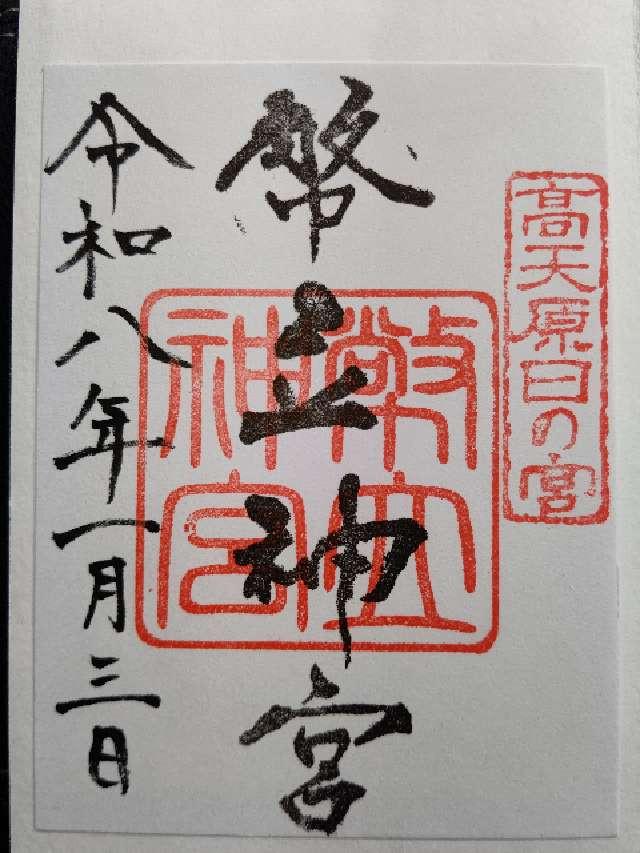 高天原日の宮
幣立神宮
幣立
神宮
令和八年一月三日